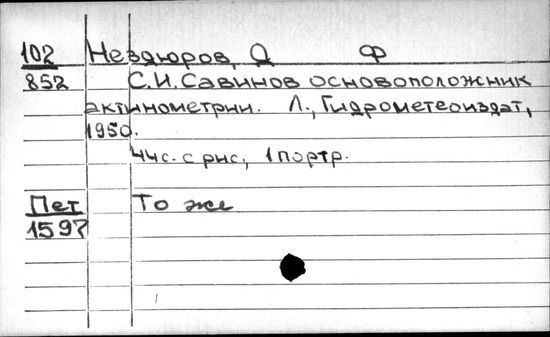 102 Нездюров, Д Ф
852 С.И.Савинов основоположник
актинометрии. Л., Гидрометеоиздат,
1950.
44с. с рис, 1 портр.
Пет То же
1597